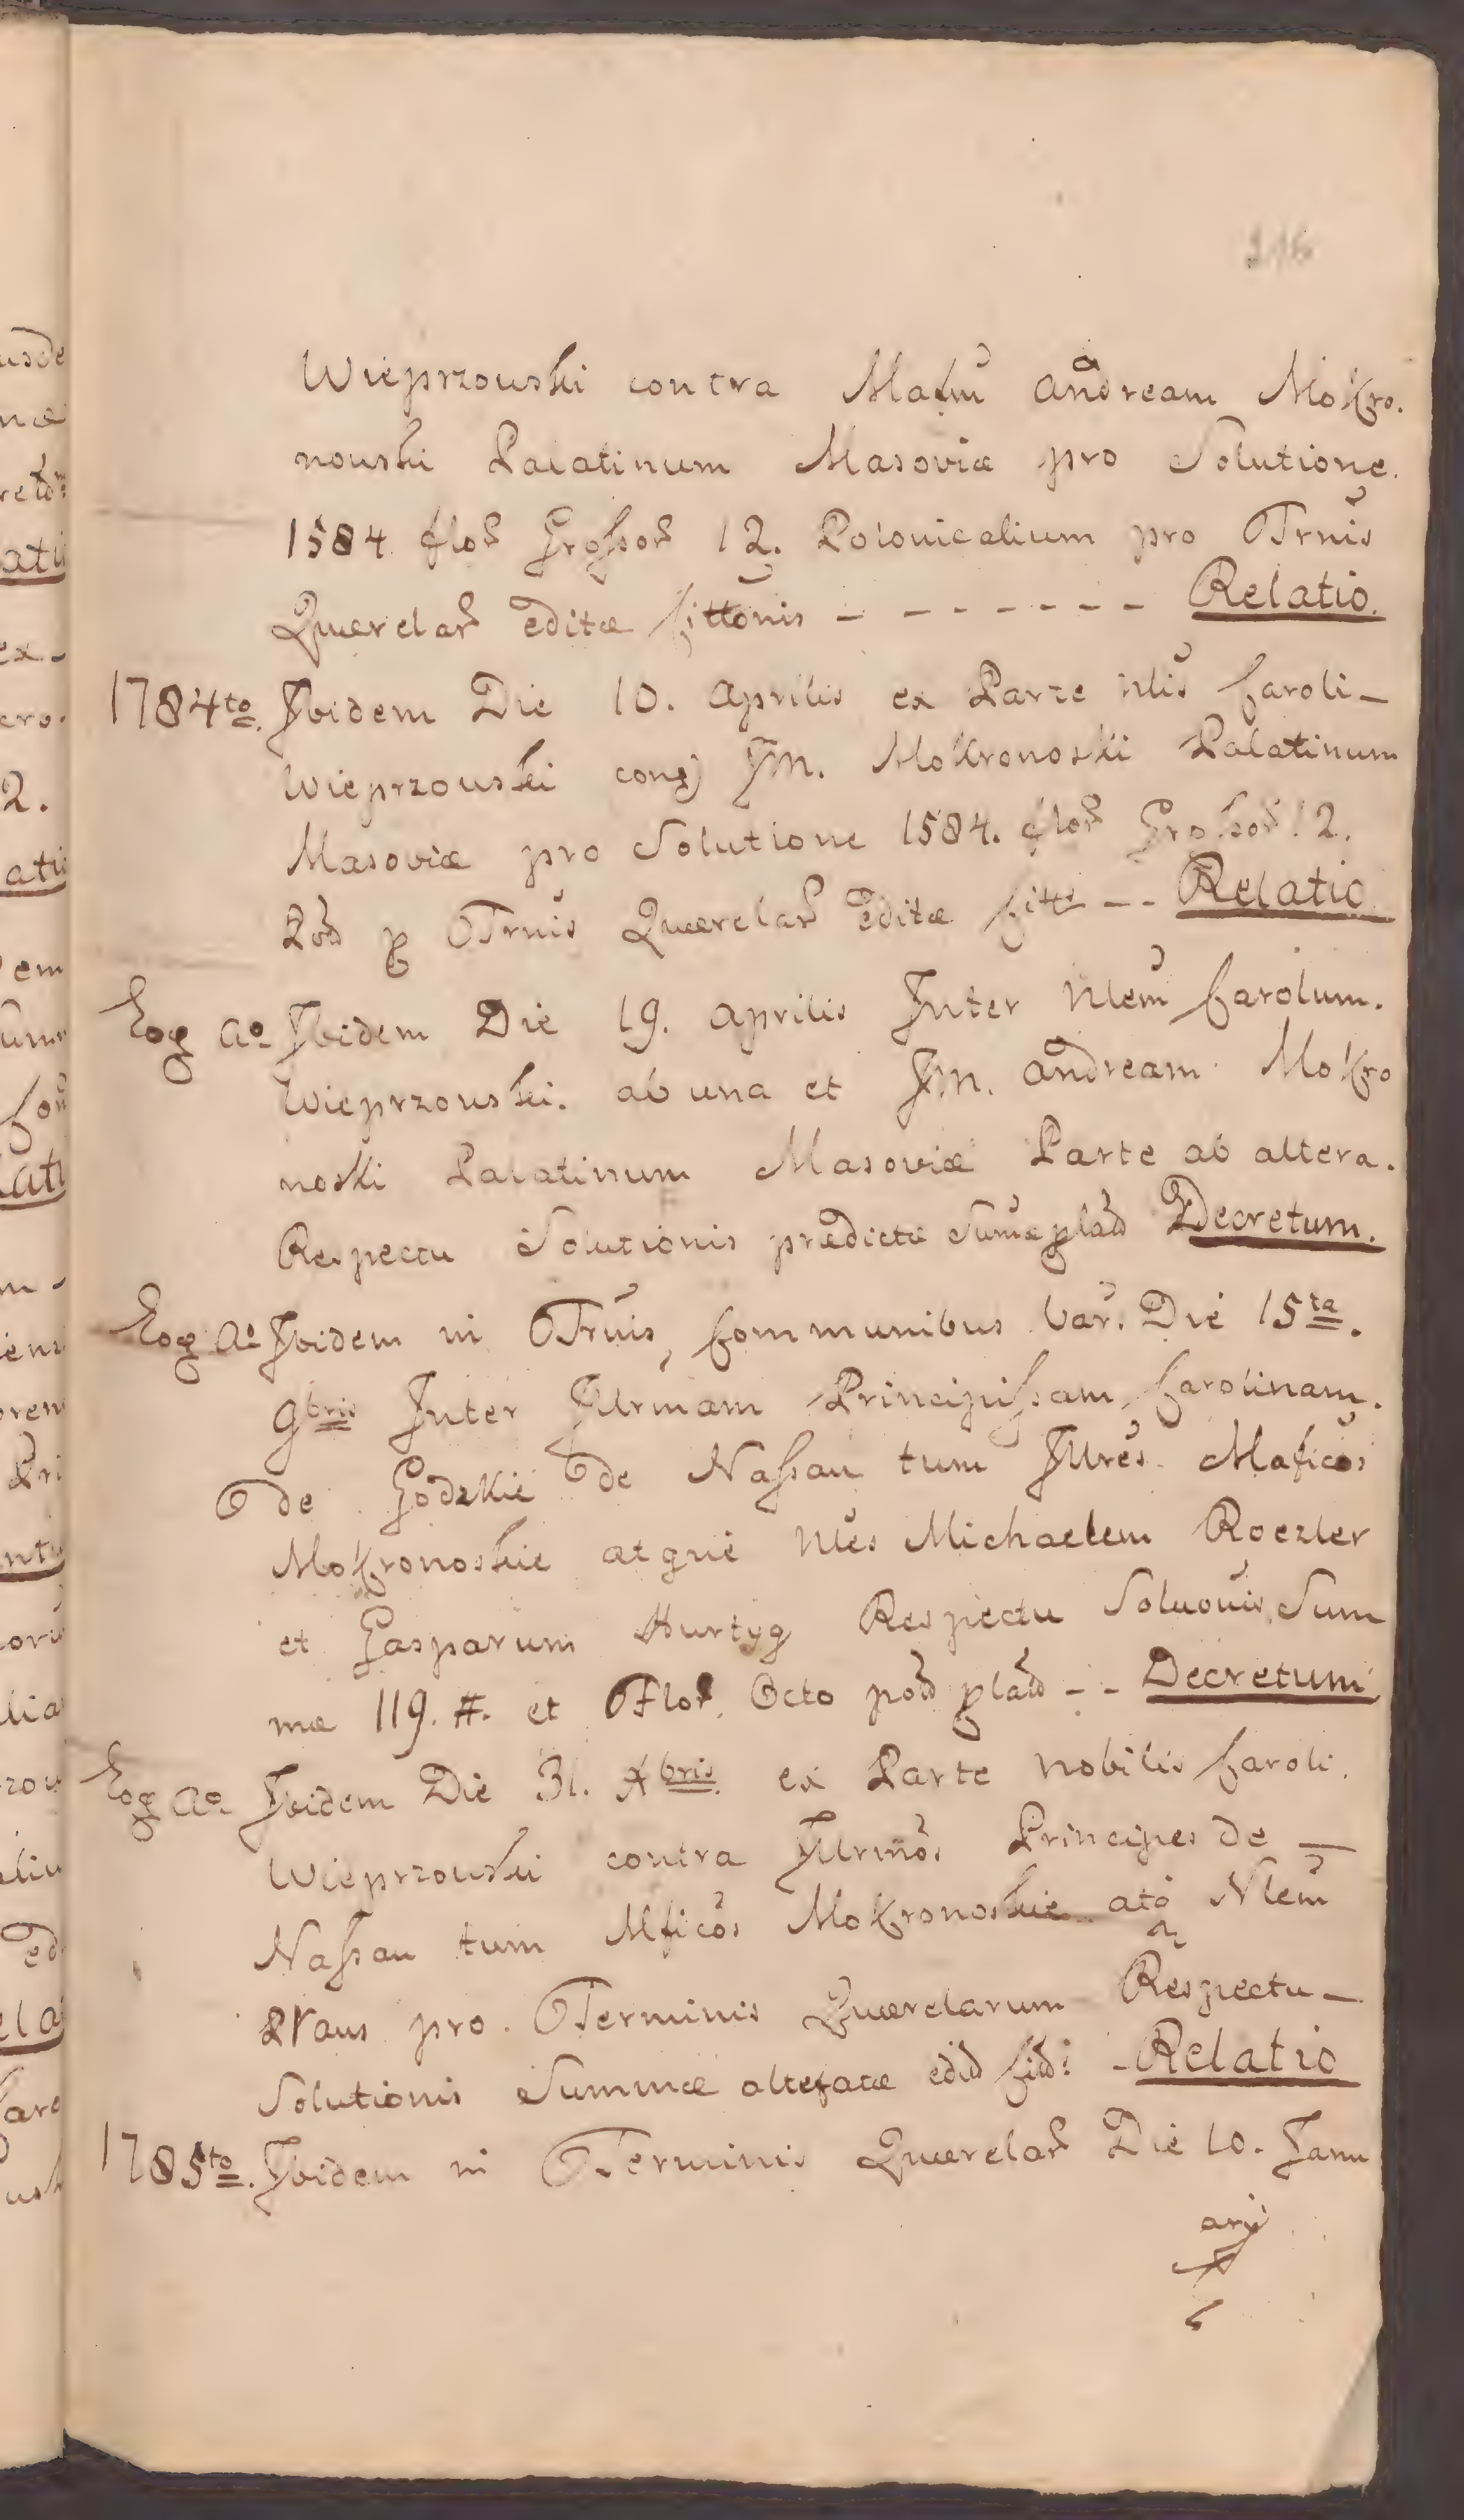 216
Wieprzouski contra Mafūm Andream Mokro.
nouski Palatinum Masoviæ pro Solutione.
1584 flor Grossor 12. Polonicalium pro Trnis
Querelar editæ Cittonis - - - - - - - - Relatio.
1784to Ibidem Die 10. Aprilis ex Parte Nlis Caroli-
Wieprzouski con JM. Mokronoski Palatinum
Masoviæ pro Solutione 1584. flor Grossor 12.
Trnis Querelar Editæ Citt -- Relatio
Eoq Ao Ibidem Die 19. Aprilis Inter Nlem Carolum.
Wieprzouski. ab una et JM. Andream Mokro
noski Palatinum Masoviæ Parte ab altera.
Respectu Solutionis prædictæ Sumæ Decretum.
Eoq Ao Ibidem in Trnis, Communibus Var. Die 15ta.
9bris Inter Illrmam Principissam, Carolinam.
de Godzkie de Nassau tum Illres. Maficos
Mokronoskie atque Nles Michaelem Roezler
et Gasparum Hurtyg Respectu Soluonis, Sum
mæ 119. #. et Flor. Octo -- Decretum
Eoq Ao Ibidem Die 31. Xbris ex Parte Nobilis Caroli.
Wieprzouski contra Illrmos Principes de —
Nassau tum Mficos Mokronoskie atq Nlem
pro. Terminis Querelarum Respectu —
Solutionis Summæ altefatæ - Relatio
1785to. Ibidem in Terminis Querelar Die 10. Janu
arij